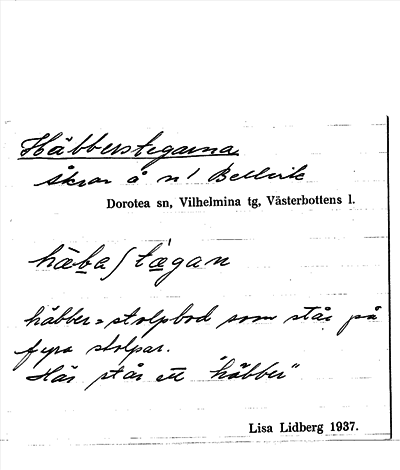 Häbberstegarna
åkrar å n! Bellvik
Dorotea sn, Vilhelmina tg, Västerbottens l.
häbber = stolpbod som står på
fyra stolpar.
Här står ett "häbber"
Lisa Lidberg 1937.